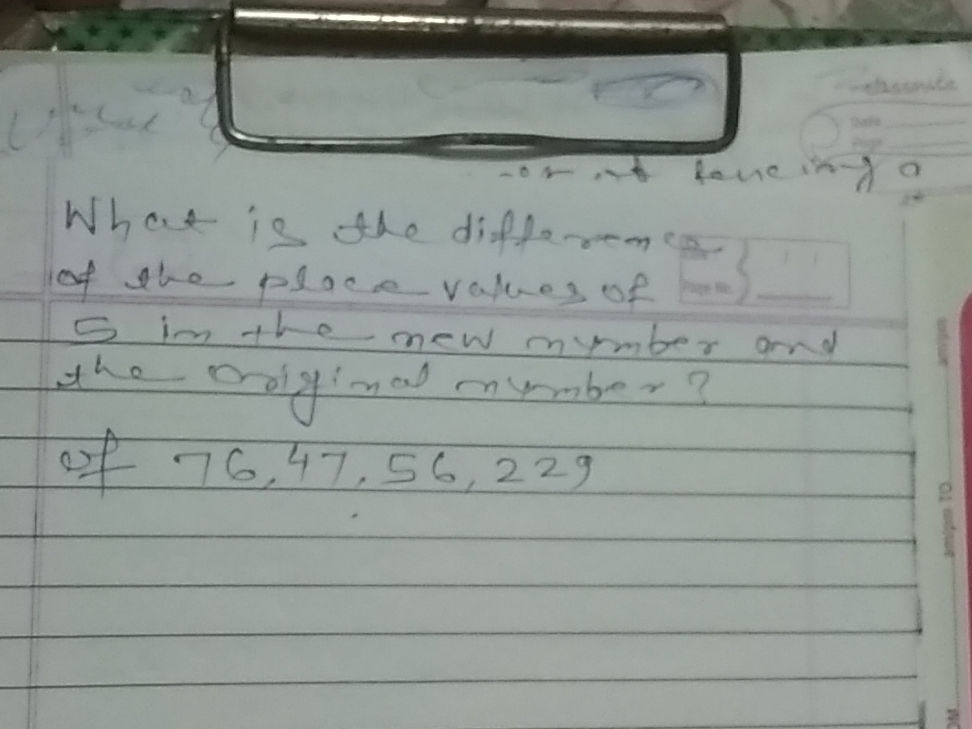 classmate
Date
Page
What is the difference
of the place values of
Page No.
5 in the new number and
the original number?
of 76,47,56,229